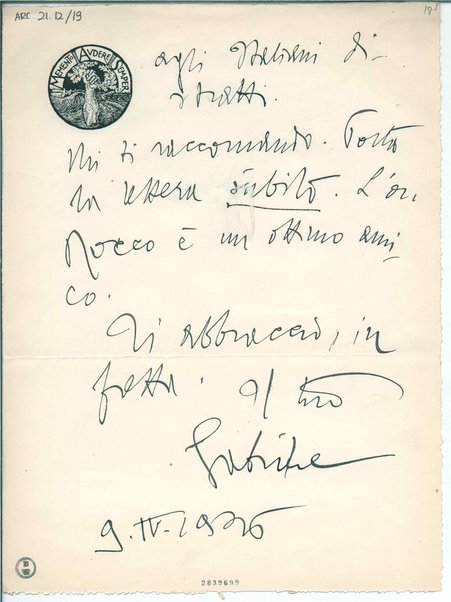 ARC. 21.12/19
MEMENTO AUDERE SEMPER
agli Italiani di-
stratti.
Mi ti raccomando. Porta
la lettera subito. L'on.
Rocco è un ottimo ami-
co.
Ti abbraccio, in
fretta. Il tuo
Gabriele
9.IV.1926
2839699